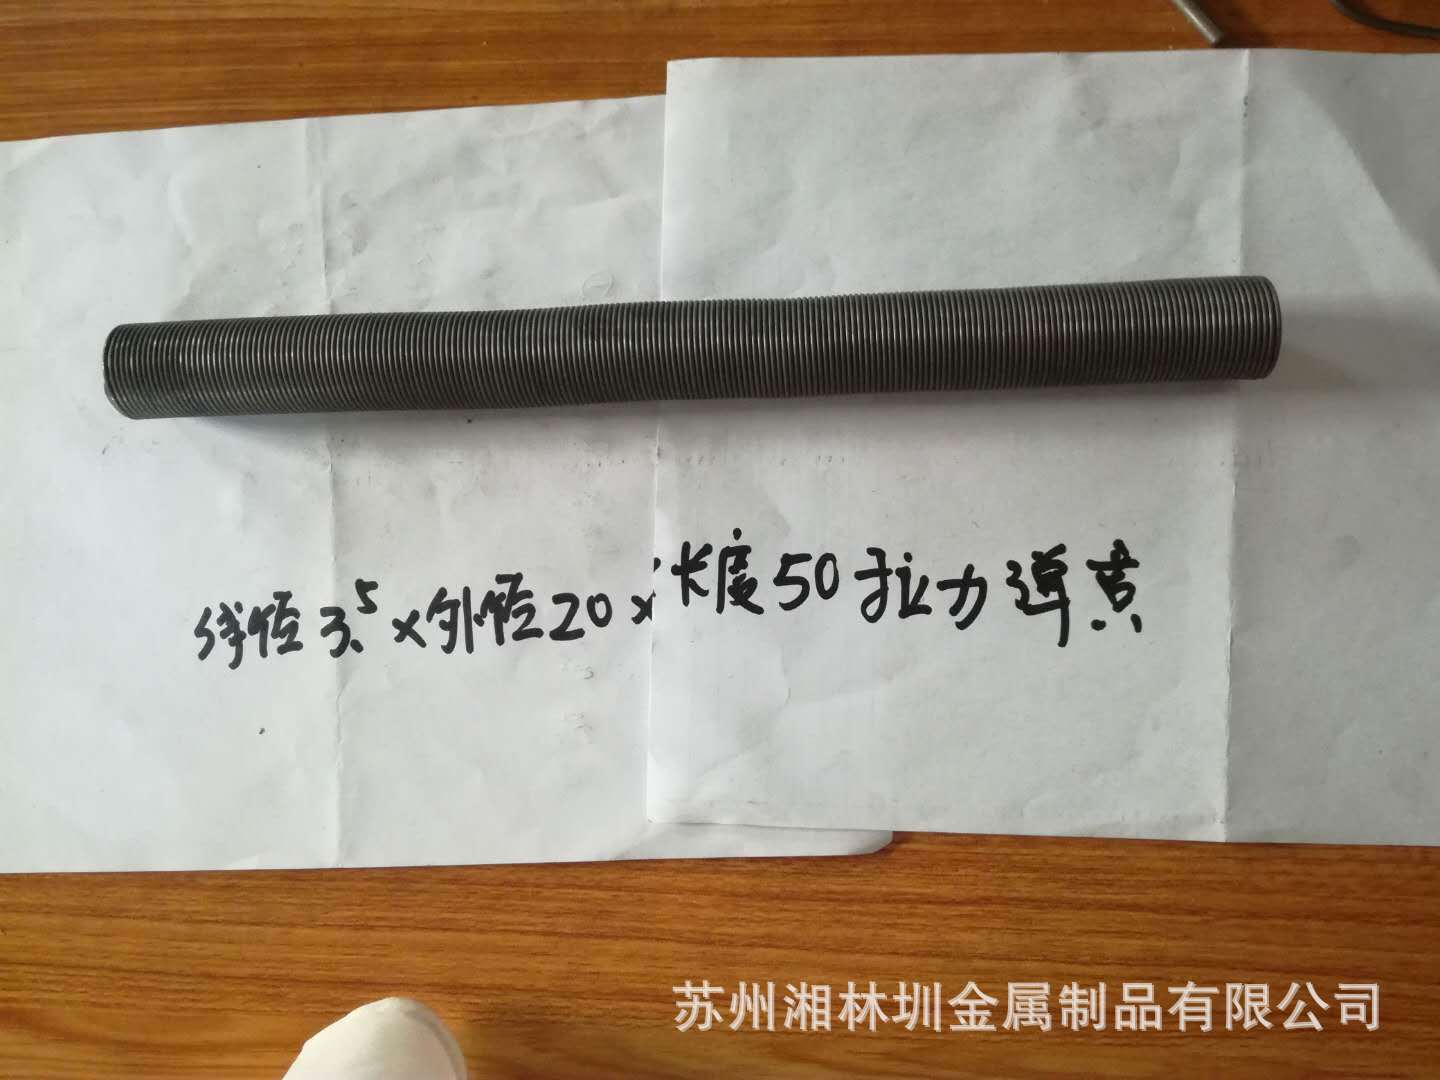 线径3.5×外径20×长度50拉力弹黄
苏州湘林圳金属制品有限公司